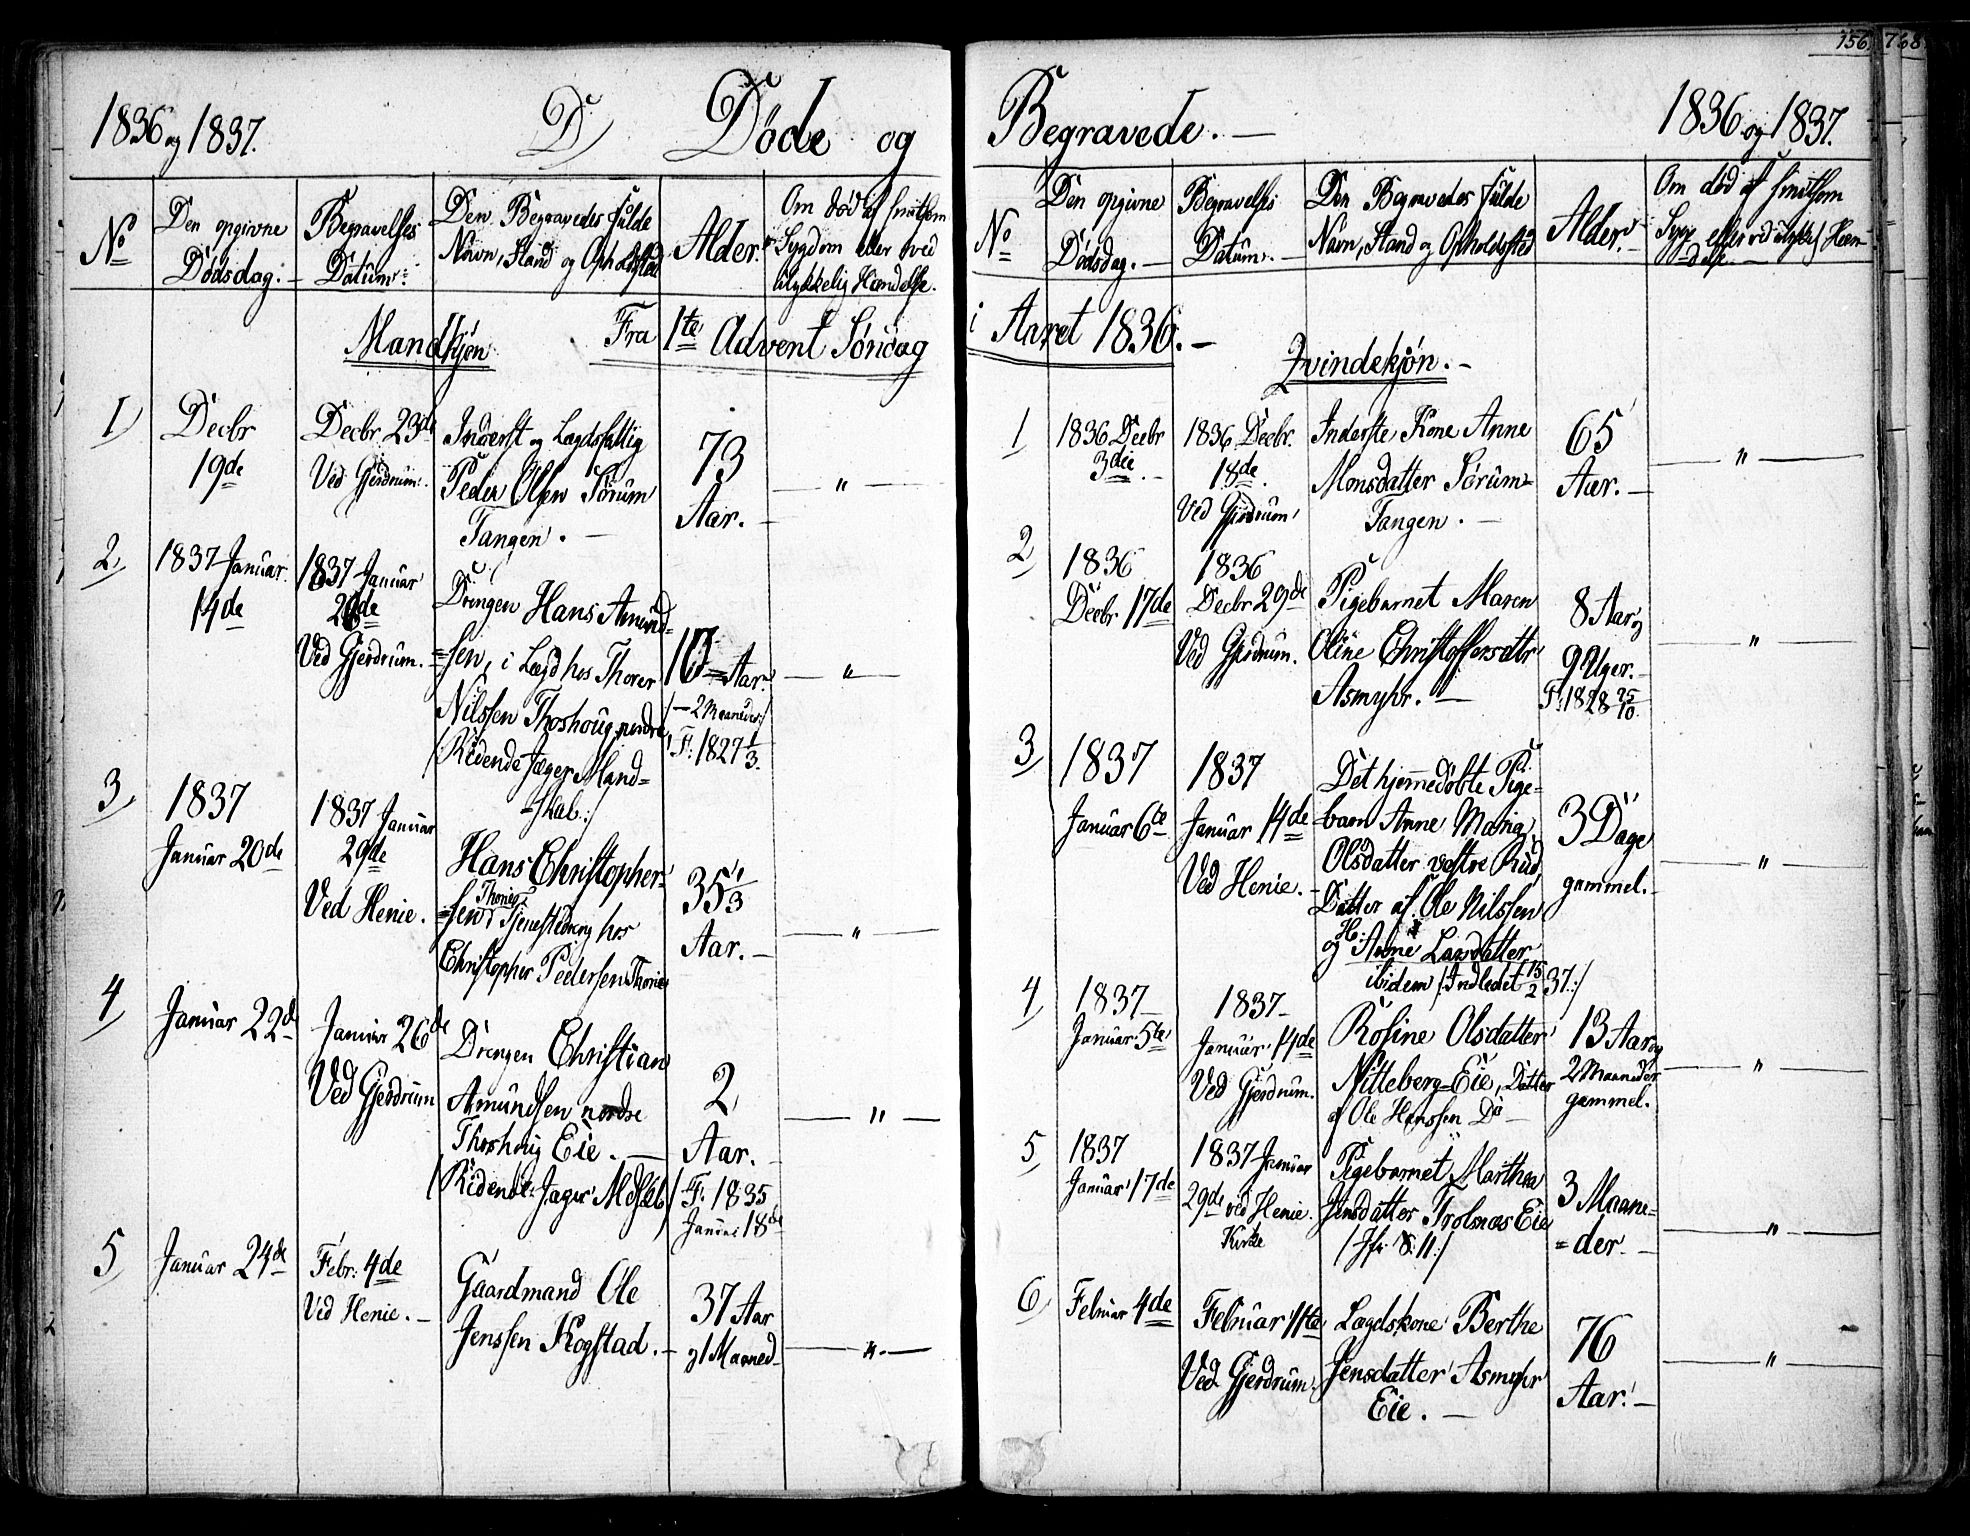 156. 768
1836 og 1837. D) Døde og
No
Den opgivne
Dødsdag.
Begravelses
Datum.
Den Begravedes fulde
Navn, Stand og Opholdsted
Alder.
Om død af smitsom
Sygdom eller ved
ulykkelig Hændelse.
Mandkjøn Fra 1te Advent Søndag
1) Decbr
19de
Decbr 23de
Ved Gjerdrum.
Inderst og Lægdsfattig
Peder Olsen Sørum
Tangen. —
73
Aar. —
— " —
2) 1837 Januar
14de
1837 Januar
26de
Ved Gjerdrum.
Drengen Hans Amund=
=sen, i Lægd hos Thorer
Nilssen Thoshoug nordre
/: Ridende Jæger Mand=
=skab:/
10 Aar
/: — 2 Maaneder:/
F. 1827 1/3.
— " —
3) 1837
Januar 20de
1837 Januar
29de
Ved Henie.
Hans Christopher=
Thonie
=sen, Tjenestedreng hos
Christopher Pedersen Thonie
35 1/3
Aar. —
— " —
4) Januar 22de
Januar 26de
Ved Gjerdrum
Drengen Christian
Amundsen nordre
Thoshoug Eie. —
/: Ridende Jæger Mdskb:/
2
Aar. —
F. 1835
Januar 18de
— " —
5) Januar 24de
Febr. 4de
Ved Henie. —
Gaardmand Ole
Jenssen Kogstad. —
37 Aar
og 1 Maaned
— " —
Begravede. — 1836 og 1837.
No
Den opgivne
Dødsdag. —
Begravelses
Datum. —
Den Begravedes fulde
Navn, Stand og Opholdsted
Alder. —
Om død af smitsom
Syge eller ved ulykkel. Hæn-
delse. —
i Aaret 1836. —
Qvindekjøn. —
1 1836 Decbr
3die. —
1836 Decbr.
18de.
Ved Gjerdrum
Inderste Kone Anne
Monsdatter Sørum=
Tangen. —
65
Aar. —
— " —
2) 1836
Decbr 17de
1836
Decbr 29de
Ved Gjerdrum.
Pigebarnet Maren
Oline Christoffersdatr
Asmyhr. —
8 Aar og
9 Uger. —
F. 1828 25/10.
— " —
3) 1837
Januar 6te
1837
Januar 14de
Ved Henie. —
Det hjemmedøbte Pige=
barn Anne Maria
Olsdatter vestre Rud,
Datter af Ole Nilssen
og H: Anne Larsdatter
ibidem /: Indledet 15/2 37:/
3 Dage
gammel. —
— " —
4) 1837 —
Januar 5te
1837 —
Januar 14de
Ved Gjerdrum.
Rosine Olsdatter
Nitteberg=Eie, Datter
af Ole Hanssen Do —
13 Aar og
2 Maaneder
gammel.
— " —
5) 1837
Januar 17de
1837 Januar
29de ved Henie
Kirke
Pigebarnet Marthea
Jensdatter Trolsnæs Eie
3 Maane=
=der. —
— " —
6) Februar 4de
Februar 11te
Ved Gjerdrum.
Lægdskone Berthe
Jensdatter Asmyhr
Eie. —
76
Aar. —
— " —